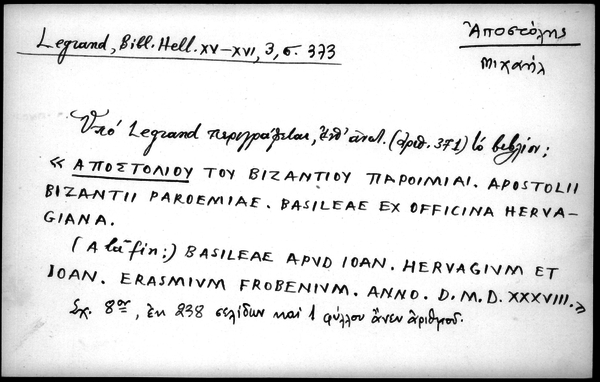 Legrand, Bibl. Hell. XV–XVI, 3, σ. 373
Ἀποστόλης
Μιχαήλ
Ὑπό Legrand περιγράφεται, (ἀριθ. 371) τό βιβλίον;
« ΑΠΟΣΤΟΛΙΟΥ ΤΟΥ ΒΙΖΑΝΤΙΟΥ ΠΑΡΟΙΜΙΑΙ. APOSTOLII
BIZANTII PAROEMIAE. BASILEAE EX OFFICINA HERVA–
GIANA.
(A la fin:) BASILEAE APVD IOAN. HERVAGIVM ET
IOAN. ERASMIVM FROBENIVM. ANNO. D. M. D. XXXVIII. »
Σχ. 8ον, ἐκ 238 σελίδων καί 1 φύλλου ἄνευ ἀριθμοῦ.